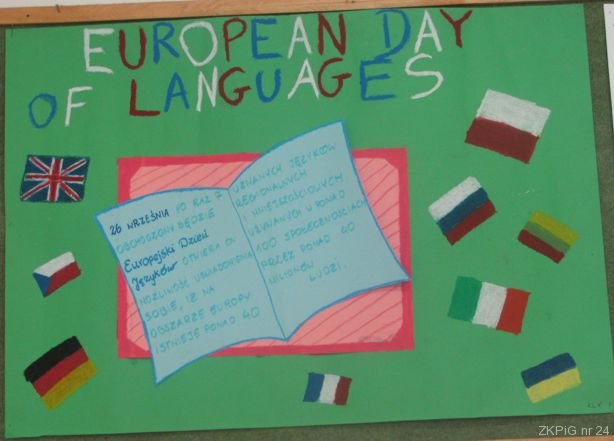 EUROPEAN DAY
OF LANGUAGES
26 WRZEŚNIA PO RAZ 7
OBCHODZONY BĘDZIE
Europejski Dzień
Języków OTWIERA ON
MOŻLIWOŚĆ UŚWIADOMIENIA
SOBIE, IŻ NA
OBSZARZE EUROPY
ISTNIEJE PONAD 40
UZNANYCH JĘZYKÓW
REGIONALNYCH
I MNIEJSZOŚCIOWYCH
UŻYWANYCH W PONAD
100 SPOŁECZNOŚCIACH
PRZEZ PONAD 40
MILIONÓW
LUDZI.
ZKPiG nr 24